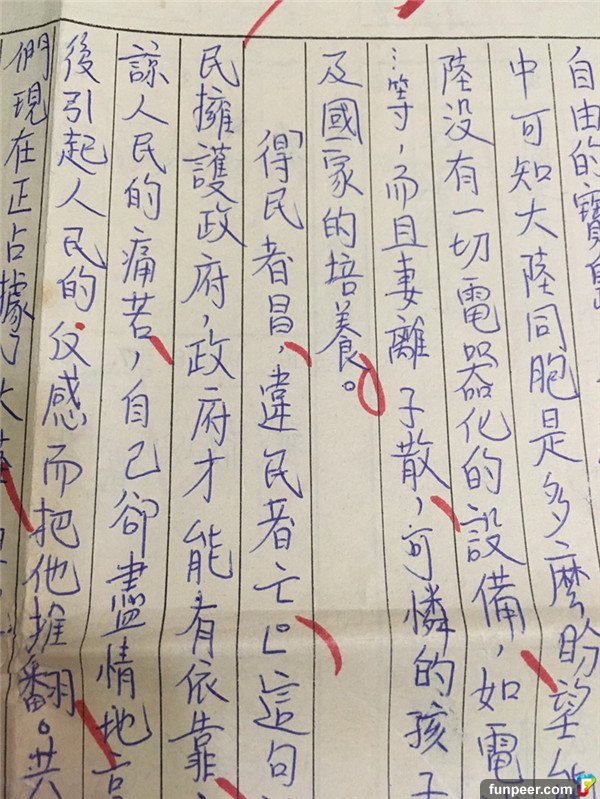 自由的寶島
中可知大陸同胞是多麼盼望能
陸没有一切電器化的設備，如電
…等，而且妻離子散，可憐的孩子
及國家的培養。
「得民者昌，違民者亡」。這句
民擁護政府，政府才能有依靠
諒人民的痛苦，自己卻盡情地享
後引起人民的反感而把他推翻。共
們現在正占據了大陸
funpeer.com